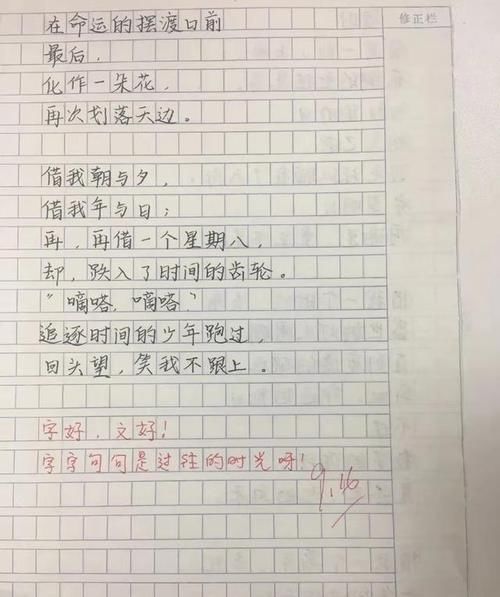 修正栏
在命运的摆渡日前
最后，
化作一朵花，
再次划落天边。
借我朝与夕，
借我年与日；
再，再借一个星期八，
却，跌入了时间的齿轮。
“嘀嗒，嘀嗒”
追逐时间的少年跑过，
回头望，笑我不跟上。
字好，文好！
字字句句是过往的时光呀！
9.16